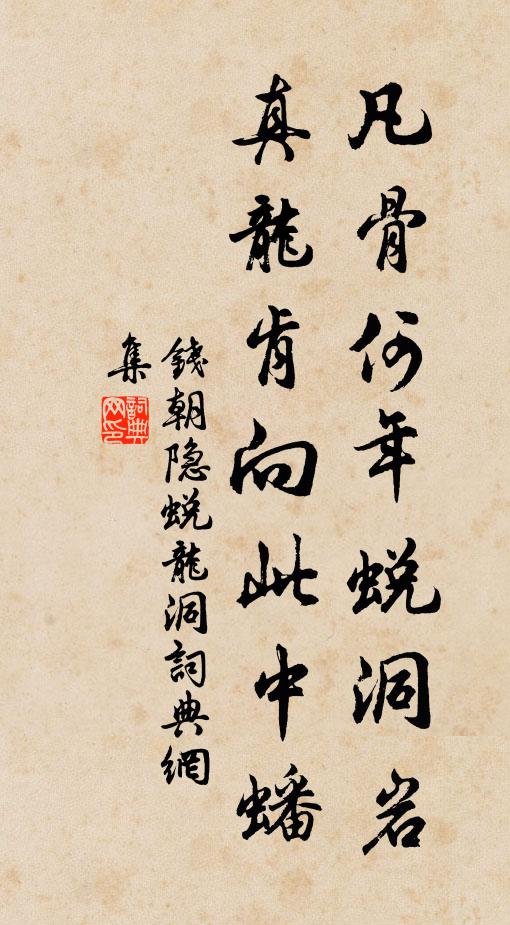 凡骨何年蜕洞岩
真龍肯向此中蟠
錢朝隐蜕龍洞詞典網
集
詞典網印